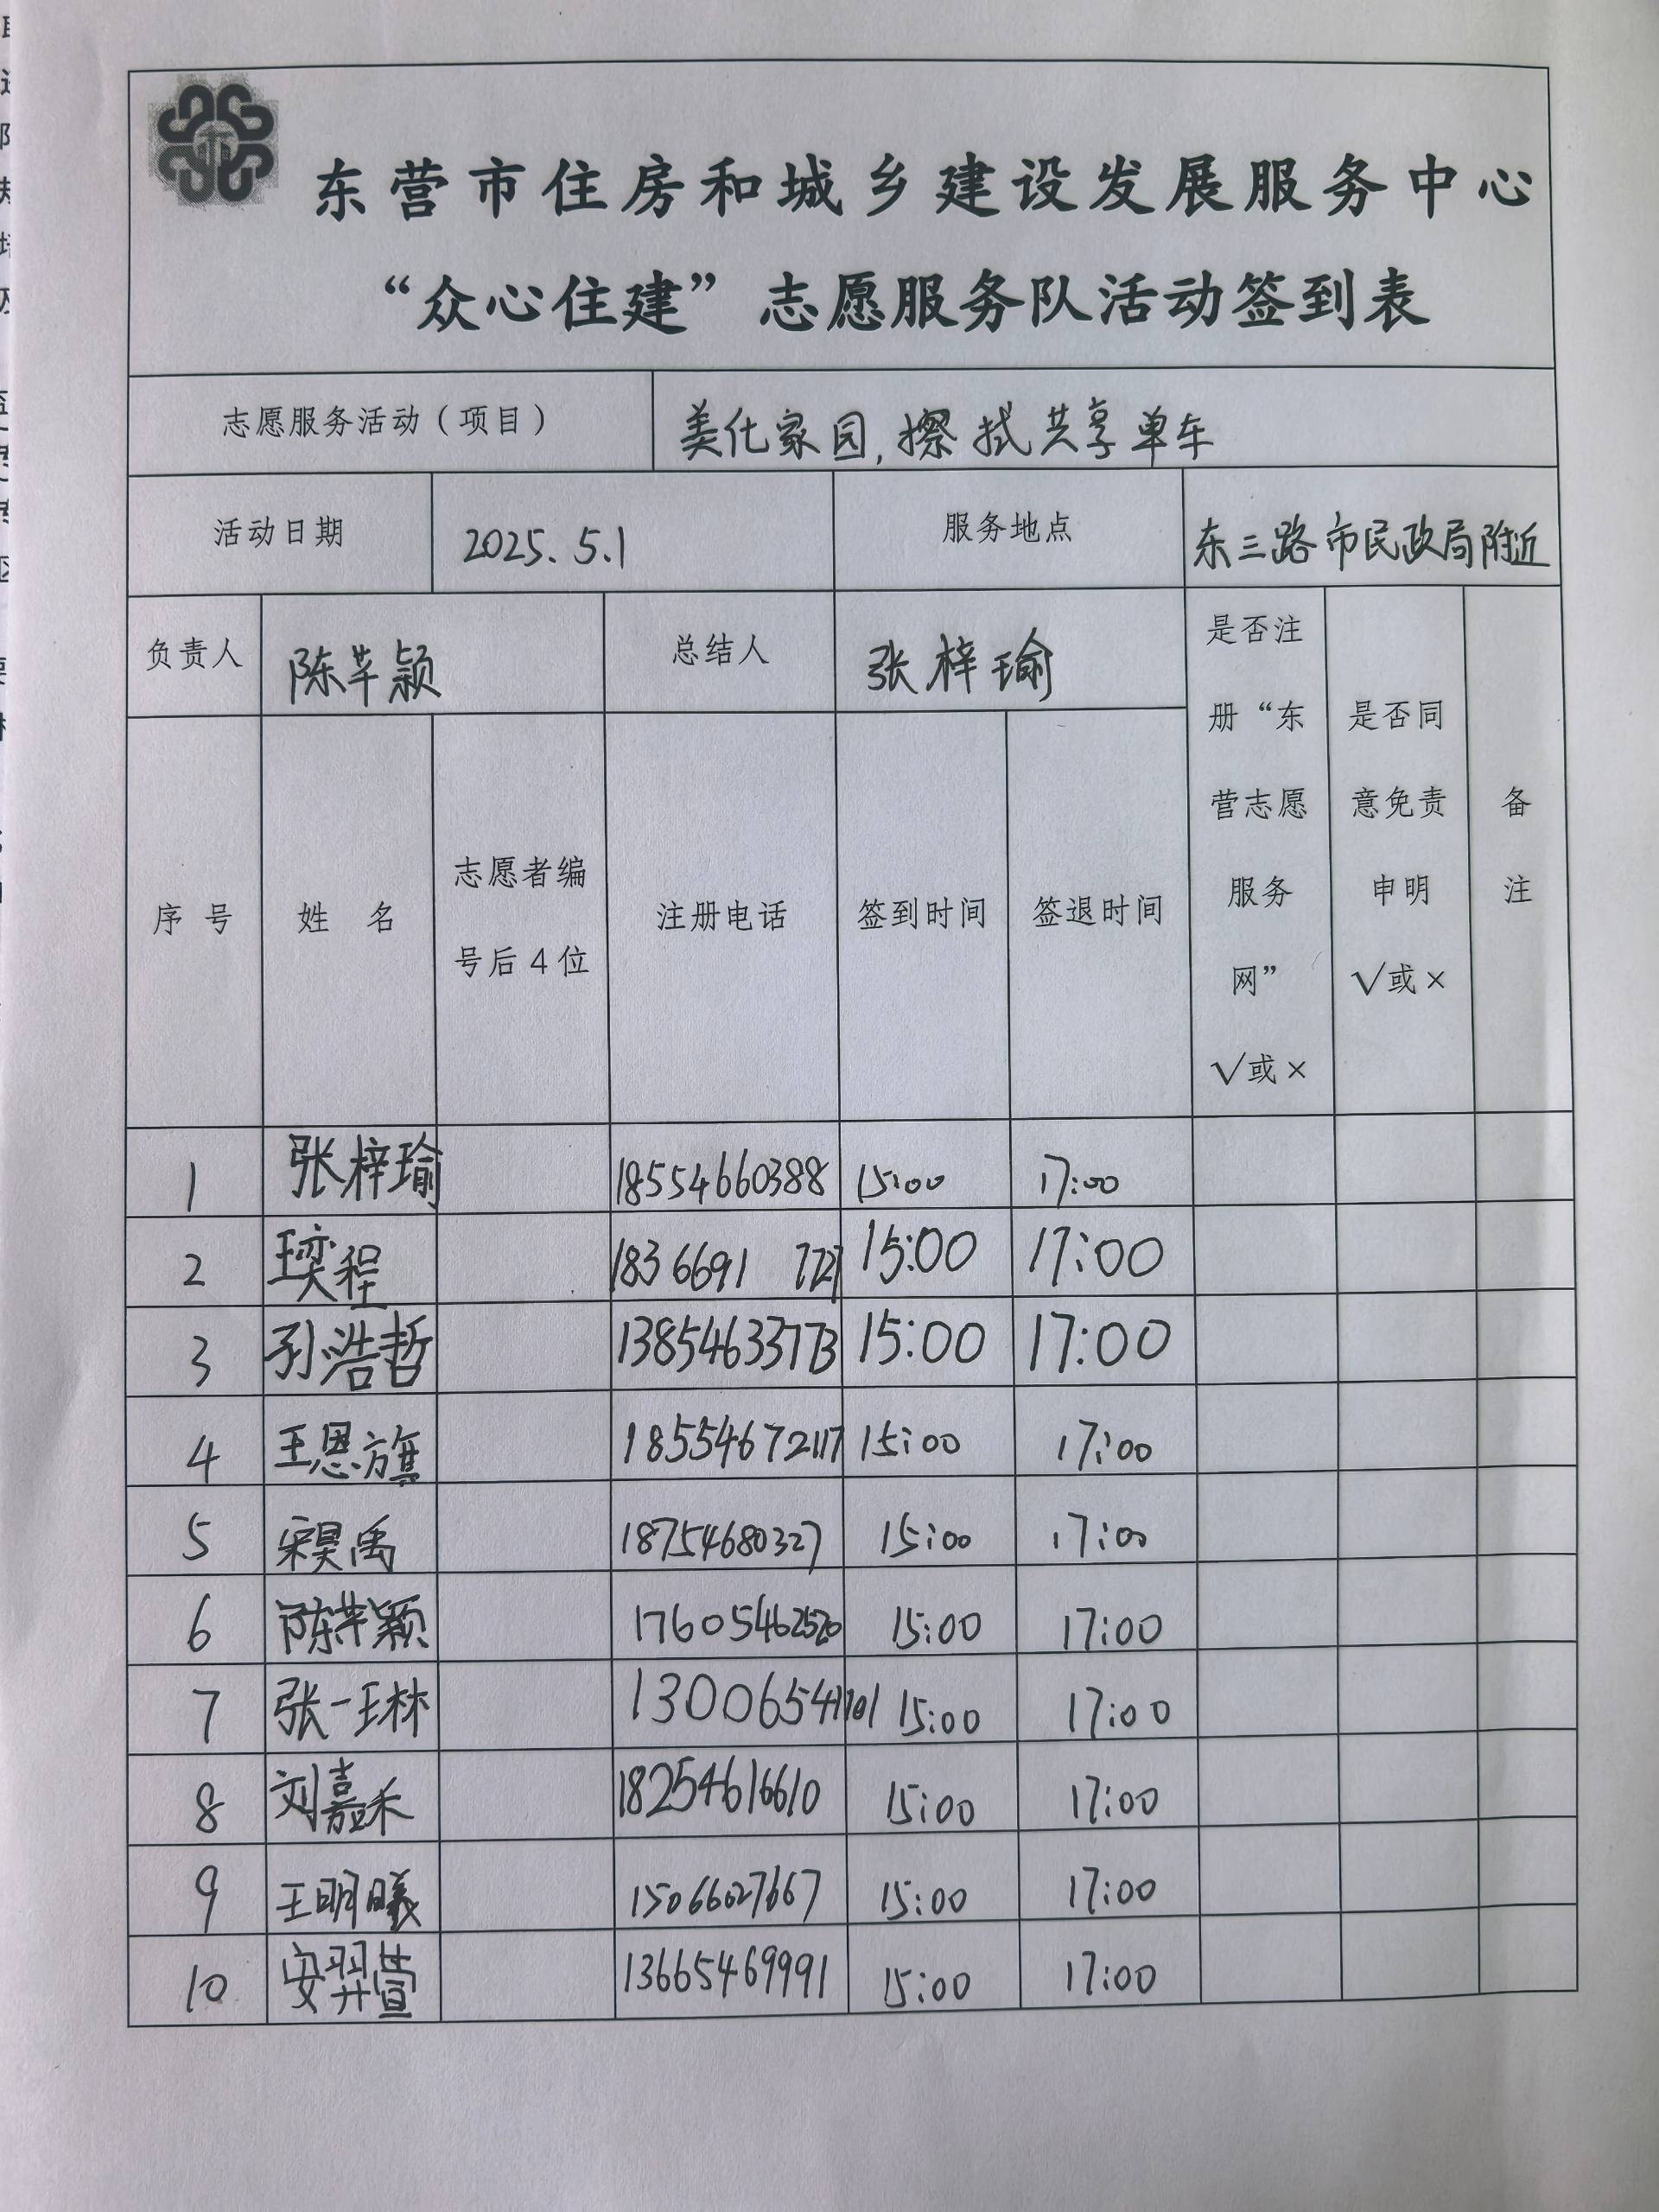 东营市住房和城乡建设发展服务中心
“众心住建”志愿服务队活动签到表
志愿服务活动（项目） 美化家园,擦拭共享单车
活动日期 2025.5.1 服务地点 东三路市民政局附近
负责人 陈芊颖 总结人 张梓瑜
序号 姓名 志愿者编号后4位 注册电话 签到时间 签退时间 是否注册“东营志愿服务网”√或× 是否同意免责申明√或× 备注
1 张梓瑜 18554660388 15:00 17:00
2 王奕程 18366917727 15:00 17:00
3 孙浩哲 13854633773 15:00 17:00
4 王恩旗 18554672117 15:00 17:00
5 宋昊禹 18754680327 15:00 17:00
6 陈芊颖 17605462520 15:00 17:00
7 张一琳 15:00 17:00
8 刘嘉禾 18254616610 15:00 17:00
9 王明曦 15066027667 15:00 17:00
10 安羿萱 13665469991 15:00 17:00